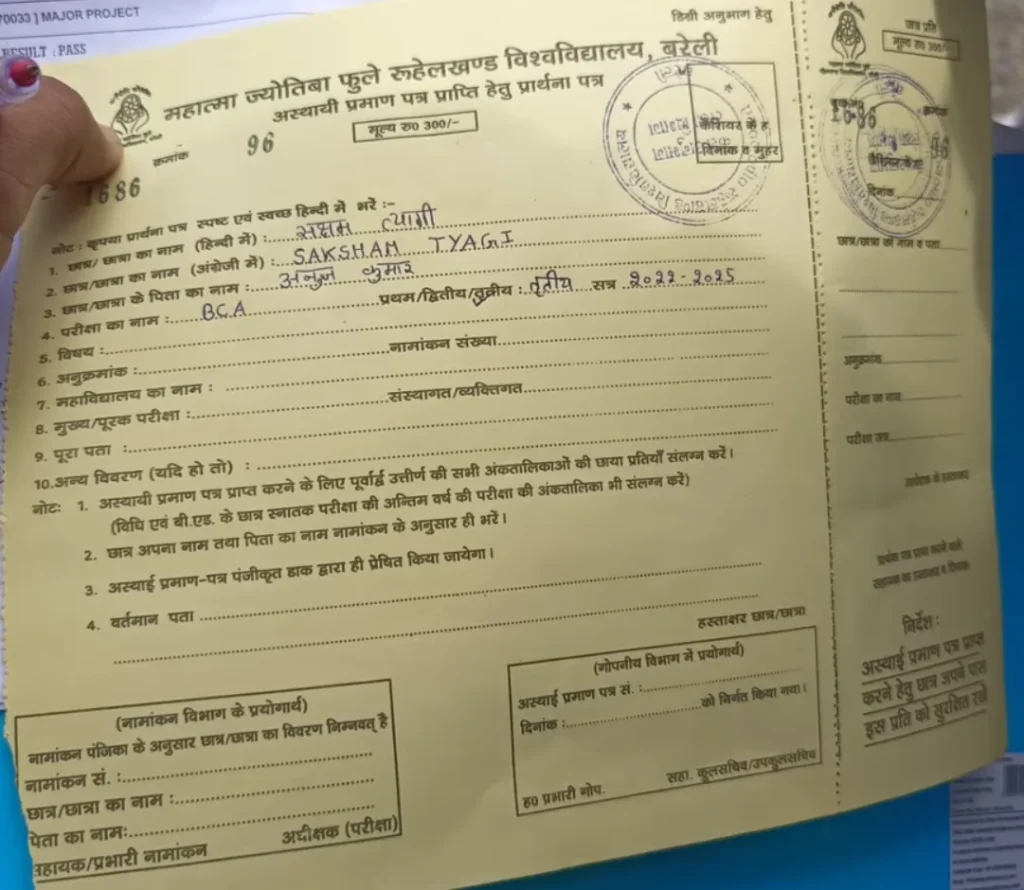 70033 ] MAJOR PROJECT
RESULT : PASS
डिग्री अनुभाग हेतु
महात्मा ज्योतिबा फुले रूहेलखण्ड विश्वविद्यालय, बरेली
अस्थायी प्रमाण पत्र प्राप्ति हेतु प्रार्थना पत्र
मूल्य रु0 300/-
क्रमांक 96
1686
कैशियर के ह
दिनांक व मुहर
नोट : कृपया प्रार्थना पत्र स्पष्ट एवं स्वच्छ हिन्दी में भरें :-
1. छात्र/ छात्रा का नाम (हिन्दी में) : सक्षम त्यागी
2. छात्र/छात्रा का नाम (अंग्रेजी में) : SAKSHAM TYAGI
3. छात्र/छात्रा के पिता का नाम : अनुज कुमार
4. परीक्षा का नाम : BCA प्रथम/द्वितीय/तृतीय : तृतीय सत्र 2022-2025
5. विषय :
6. अनुक्रमांक : नामांकन संख्या
7. महाविद्यालय का नाम :
8. मुख्य/पूरक परीक्षा : संस्थागत/व्यक्तिगत
9. पूरा पता :
10.अन्य विवरण (यदि हो तो) :
नोटः 1. अस्थायी प्रमाण पत्र प्राप्त करने के लिए पूर्वार्द्ध उत्तीर्ण की सभी अंकतालिकाओं की छाया प्रतियाँ संलग्न करें।
(विधि एवं बी.एड. के छात्र स्नातक परीक्षा की अन्तिम वर्ष की परीक्षा की अंकतालिका भी संलग्न करें)
2. छात्र अपना नाम तथा पिता का नाम नामांकन के अनुसार ही भरें।
3. अस्थाई प्रमाण-पत्र पंजीकृत डाक द्वारा ही प्रेषित किया जायेगा।
4. वर्तमान पता
हस्ताक्षर छात्र/छात्रा
(नामांकन विभाग के प्रयोगार्थ)
नामांकन पंजिका के अनुसार छात्र/छात्रा का विवरण निम्नवत् है
नामांकन सं. :
छात्र/छात्रा का नाम :
पिता का नामः
सहायक/प्रभारी नामांकन अधीक्षक (परीक्षा)
(गोपनीय विभाग में प्रयोगार्थ)
अस्थाई प्रमाण पत्र सं. :
दिनांक : को निर्गत किया गया।
ह0 प्रभारी गोप. सहा. कुलसचिव/उपकुलसचिव
छात्र प्रति
मूल्य रु0 300/-
क्रमांक
1686
96
दिनांक
छात्र/छात्रा का नाम व पता
अनुक्रमांक
परीक्षा का नाम
परीक्षा सत्र
आवेदक के हस्ताक्षर
प्रार्थना पत्र प्राप्त करने वाले
सहायक का हस्ताक्षर व दिनांक
निर्देश :
अस्थाई प्रमाण पत्र प्राप्त
करने हेतु छात्र अपने पास
इस प्रति को सुरक्षित रखें